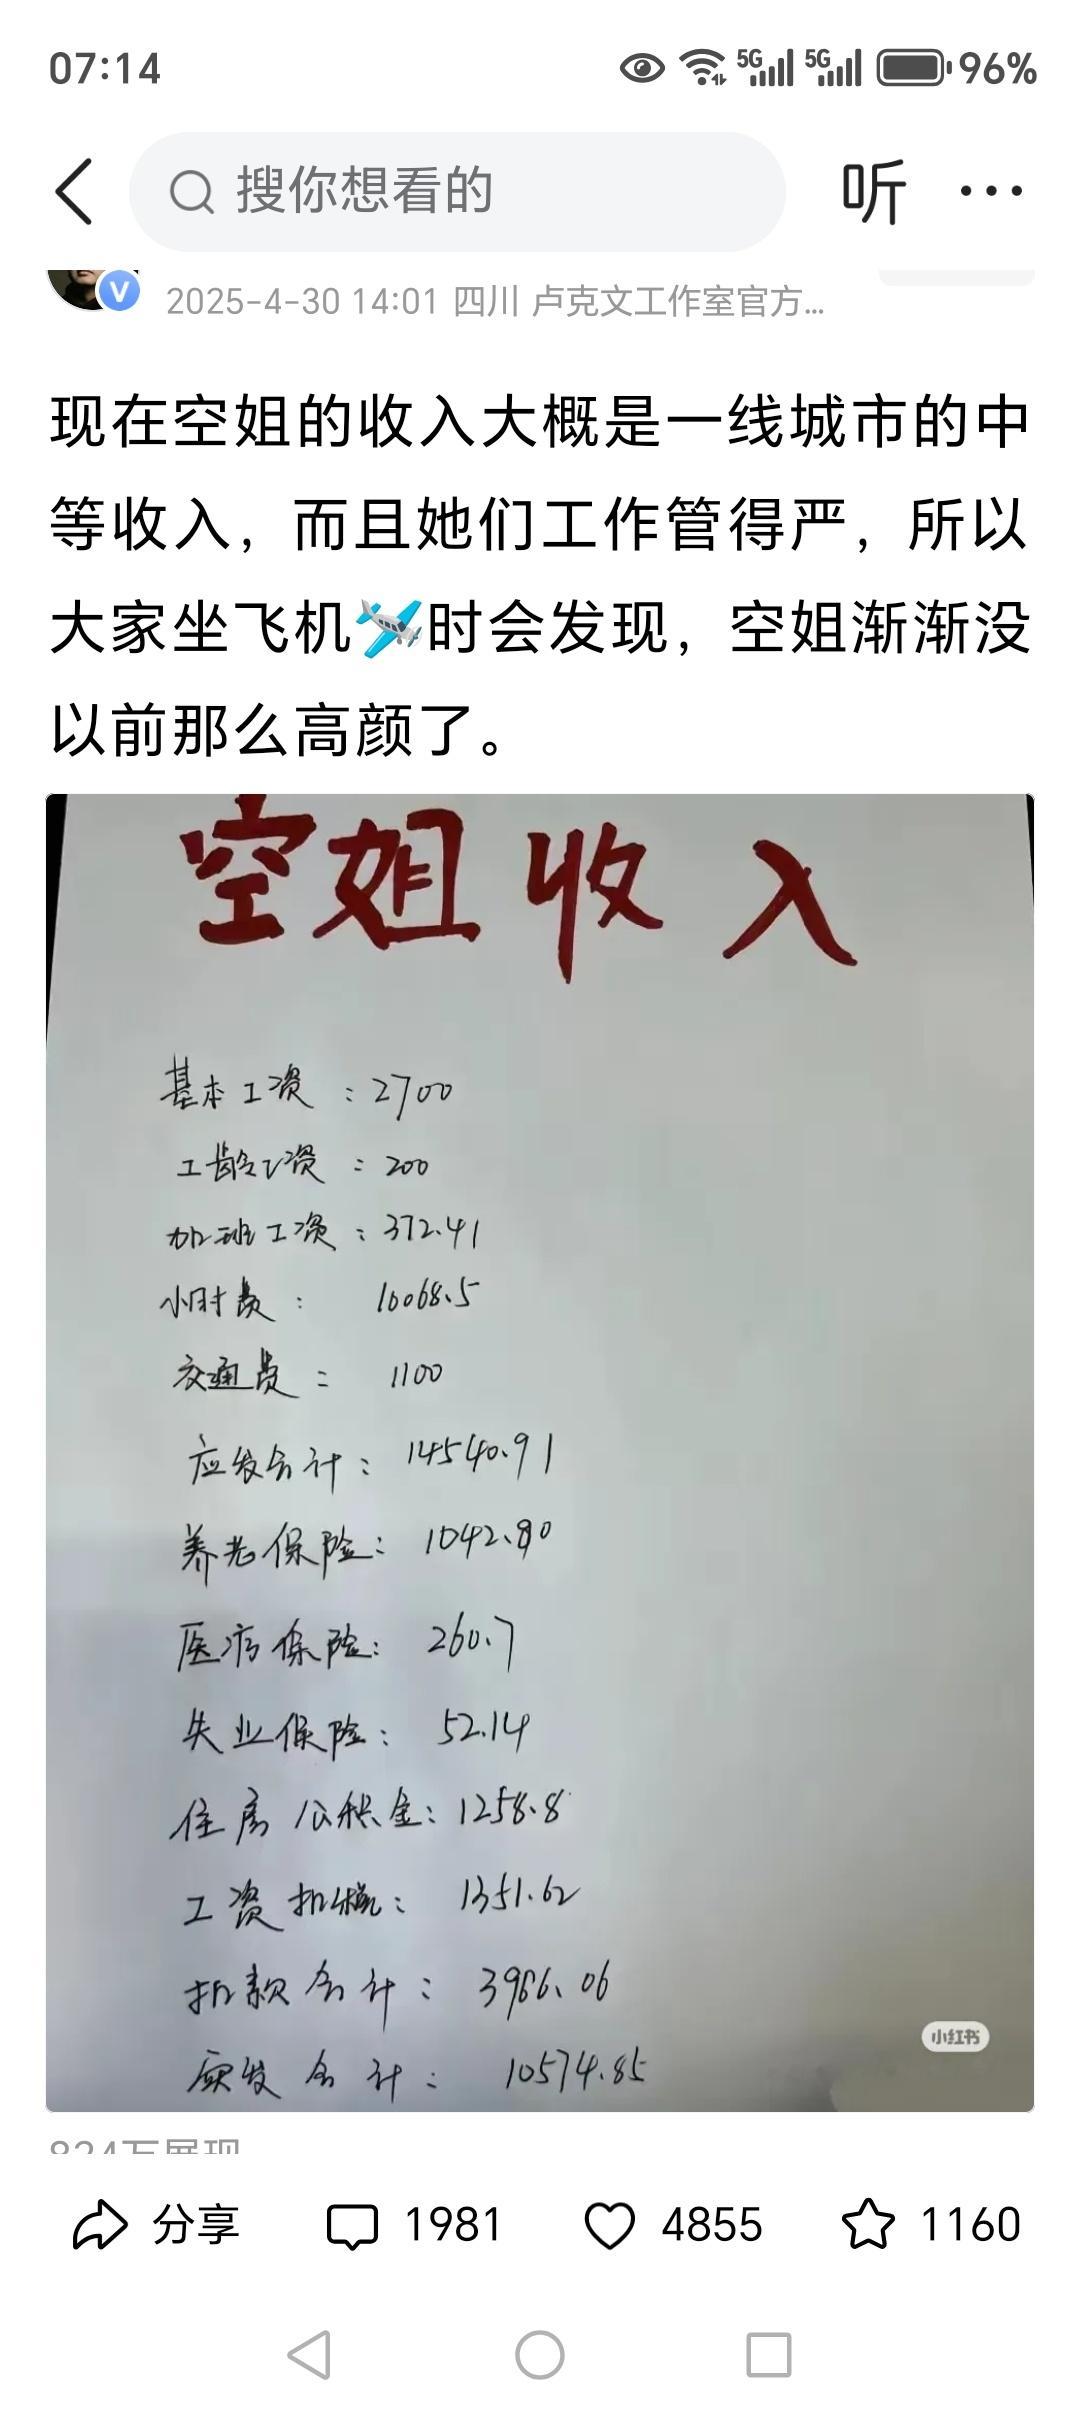 07:14
5G 5G 96%
搜你想看的 听
V
2025-4-30 14:01 四川 卢克文工作室官方...
现在空姐的收入大概是一线城市的中
等收入，而且她们工作管得严，所以
大家坐飞机🛩️时会发现，空姐渐渐没
以前那么高颜了。
空姐收入
基本工资：2700
工龄工资：200
加班工资：372.41
小时费：10068.5
交通费：1100
应发合计：14540.91
养老保险：1042.80
医疗保险：260.7
失业保险：52.14
住房公积金：1258.8
工资扣税：1351.62
扣款合计：3966.06
实发合计：10574.85
小红书
分享 1981 4855 1160